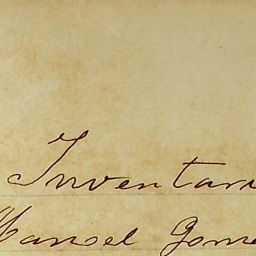 Inventari
Manoel Gome